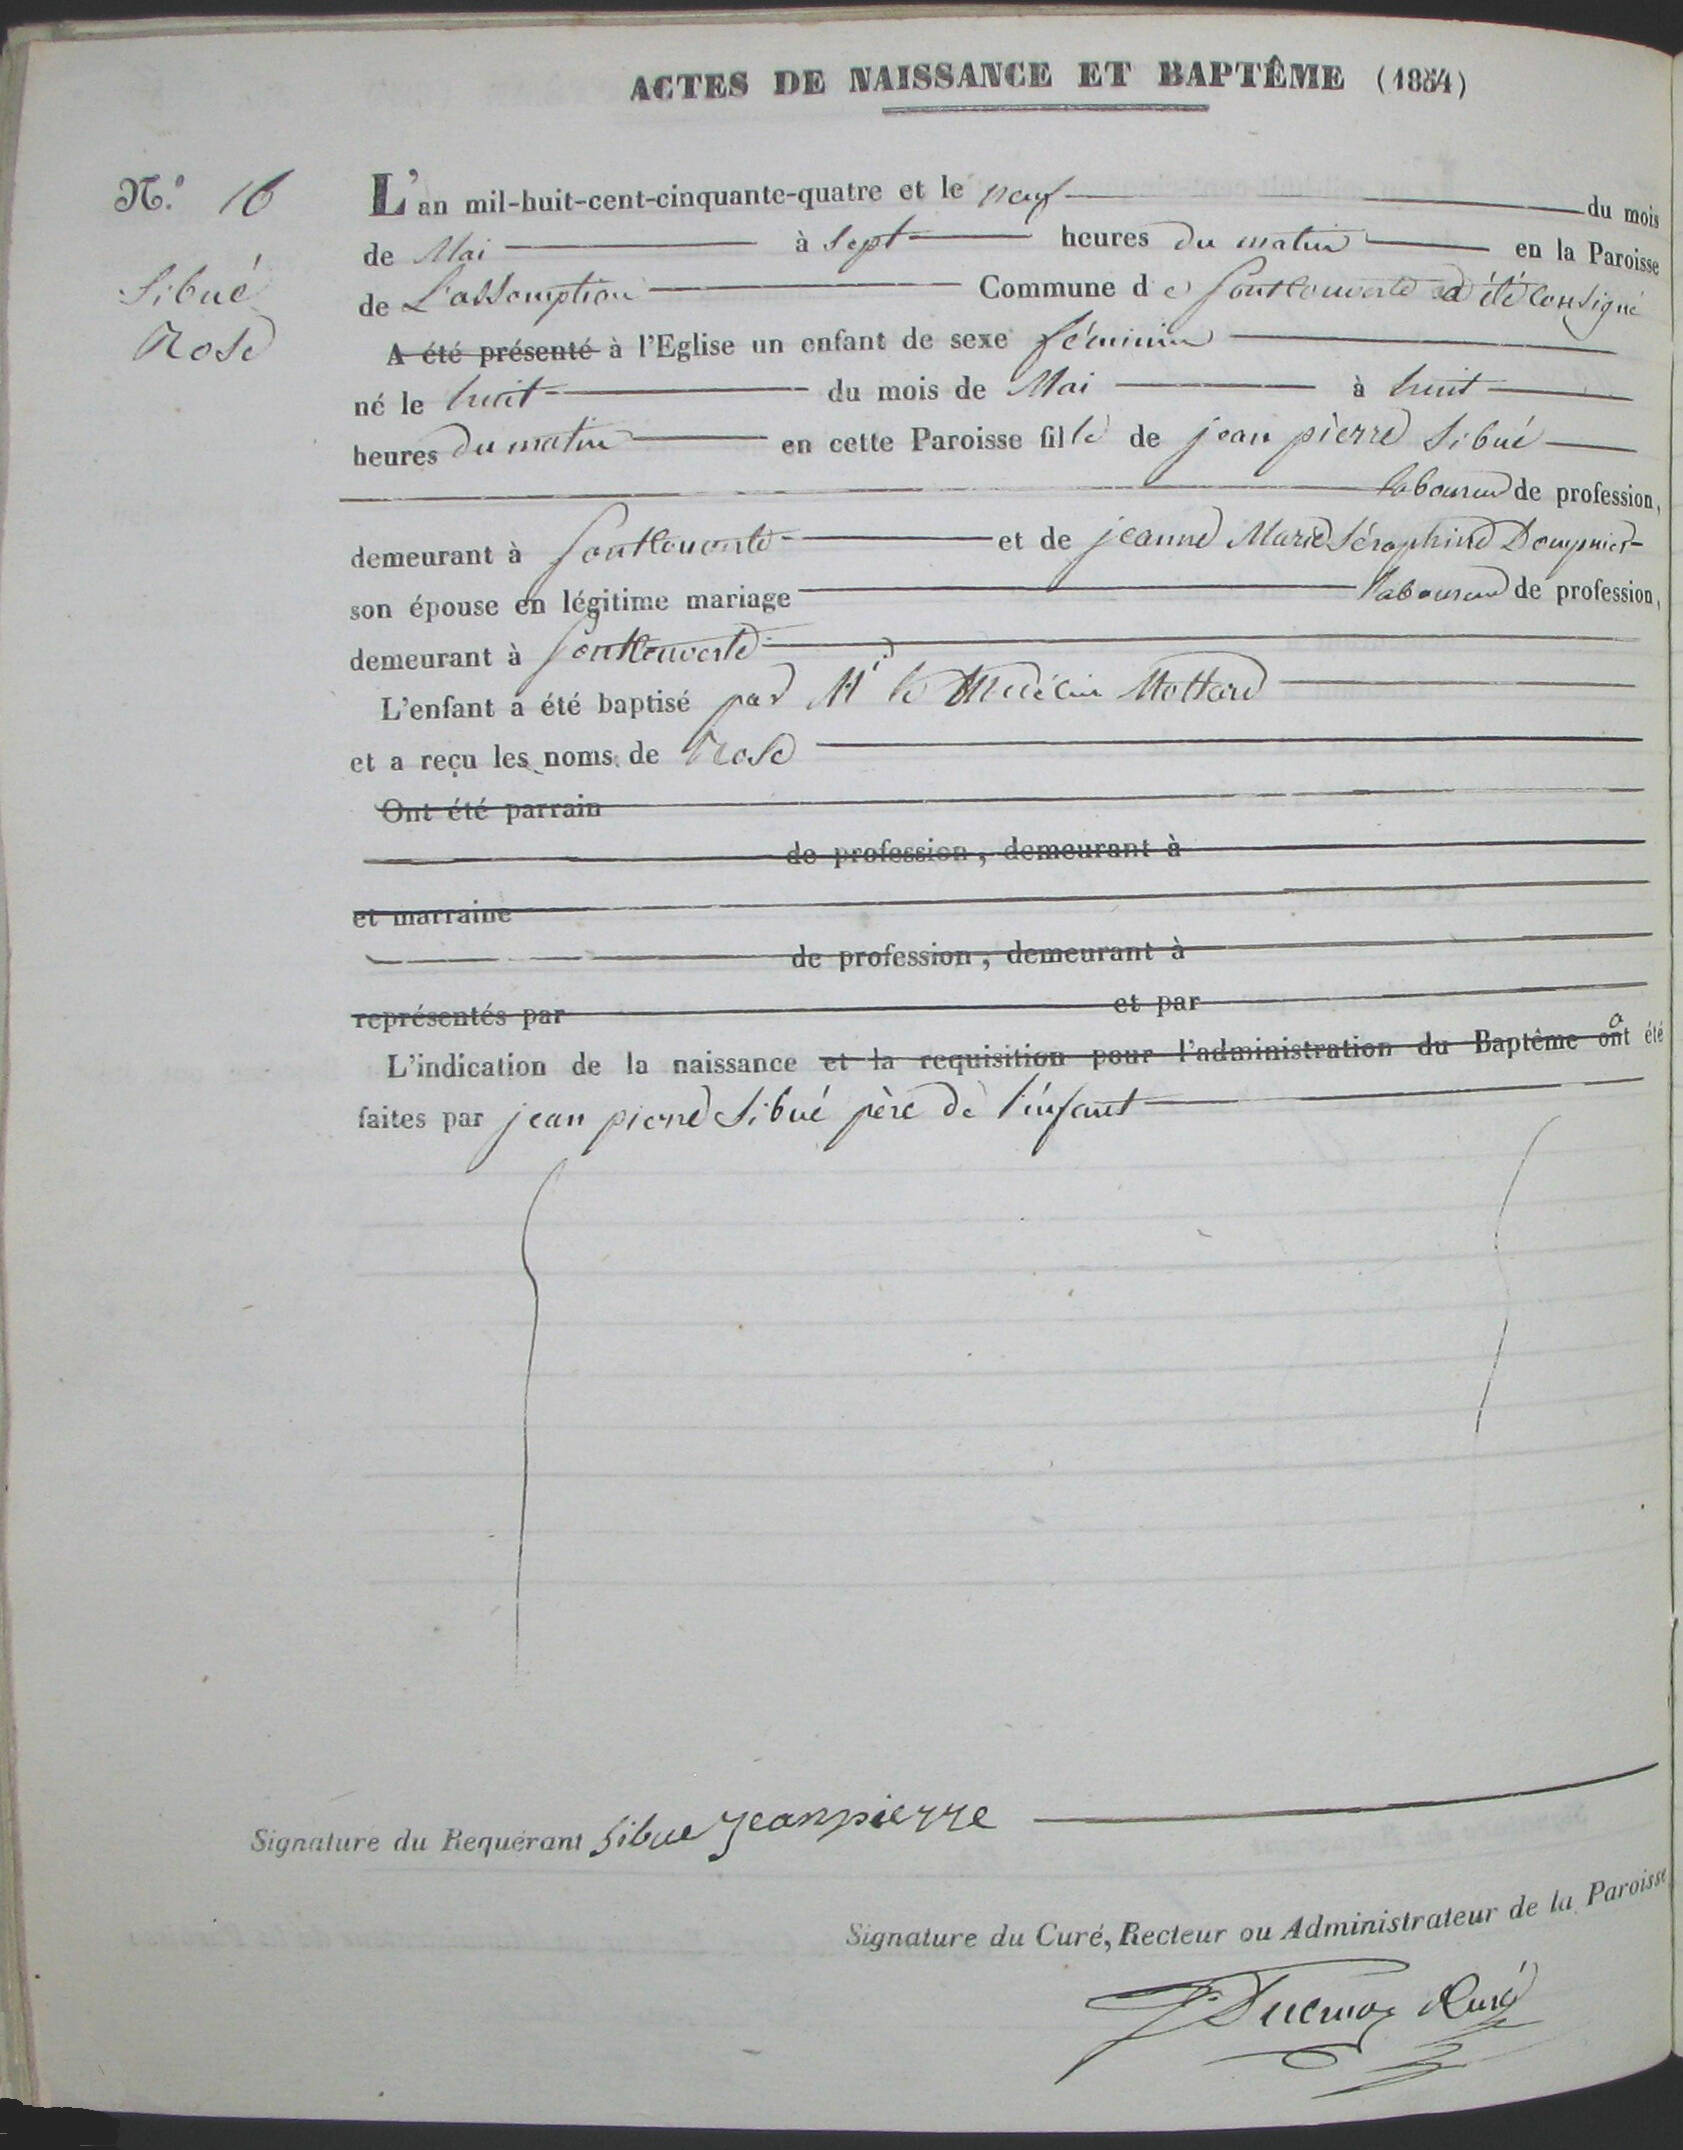 ACTES DE NAISSANCE ET BAPTÊME (1854)
N.° 16
Sibué
Rose
L'an mil-huit-cent-cinquante-quatre et le neuf du mois
de Mai à sept heures du matin en la Paroisse
de L'assomption Commune de fontcouverte a été consigné
A été présenté à l'Eglise un enfant de sexe féminin
né le huit du mois de Mai à huit
heures du matin en cette Paroisse fille de jean pierre Sibué
laboureur de profession,
demeurant à fontcouverte et de jeanne Marie Séraphine Dompnier
son épouse en légitime mariage laboureur de profession,
demeurant à fontcouverte
L'enfant a été baptisé par Mr le Médécin Mottard
et a reçu les noms de Rose
Ont été parrain
de profession, demeurant à
et marraine
de profession, demeurant à
représentés par et par
L'indication de la naissance et la requisition pour l'administration du Baptême ont a été
faites par jean pierre Sibué père de l'enfant
Signature du Requérant Sibue jeanpierre
Signature du Curé, Recteur ou Administrateur de la Paroisse
Curé